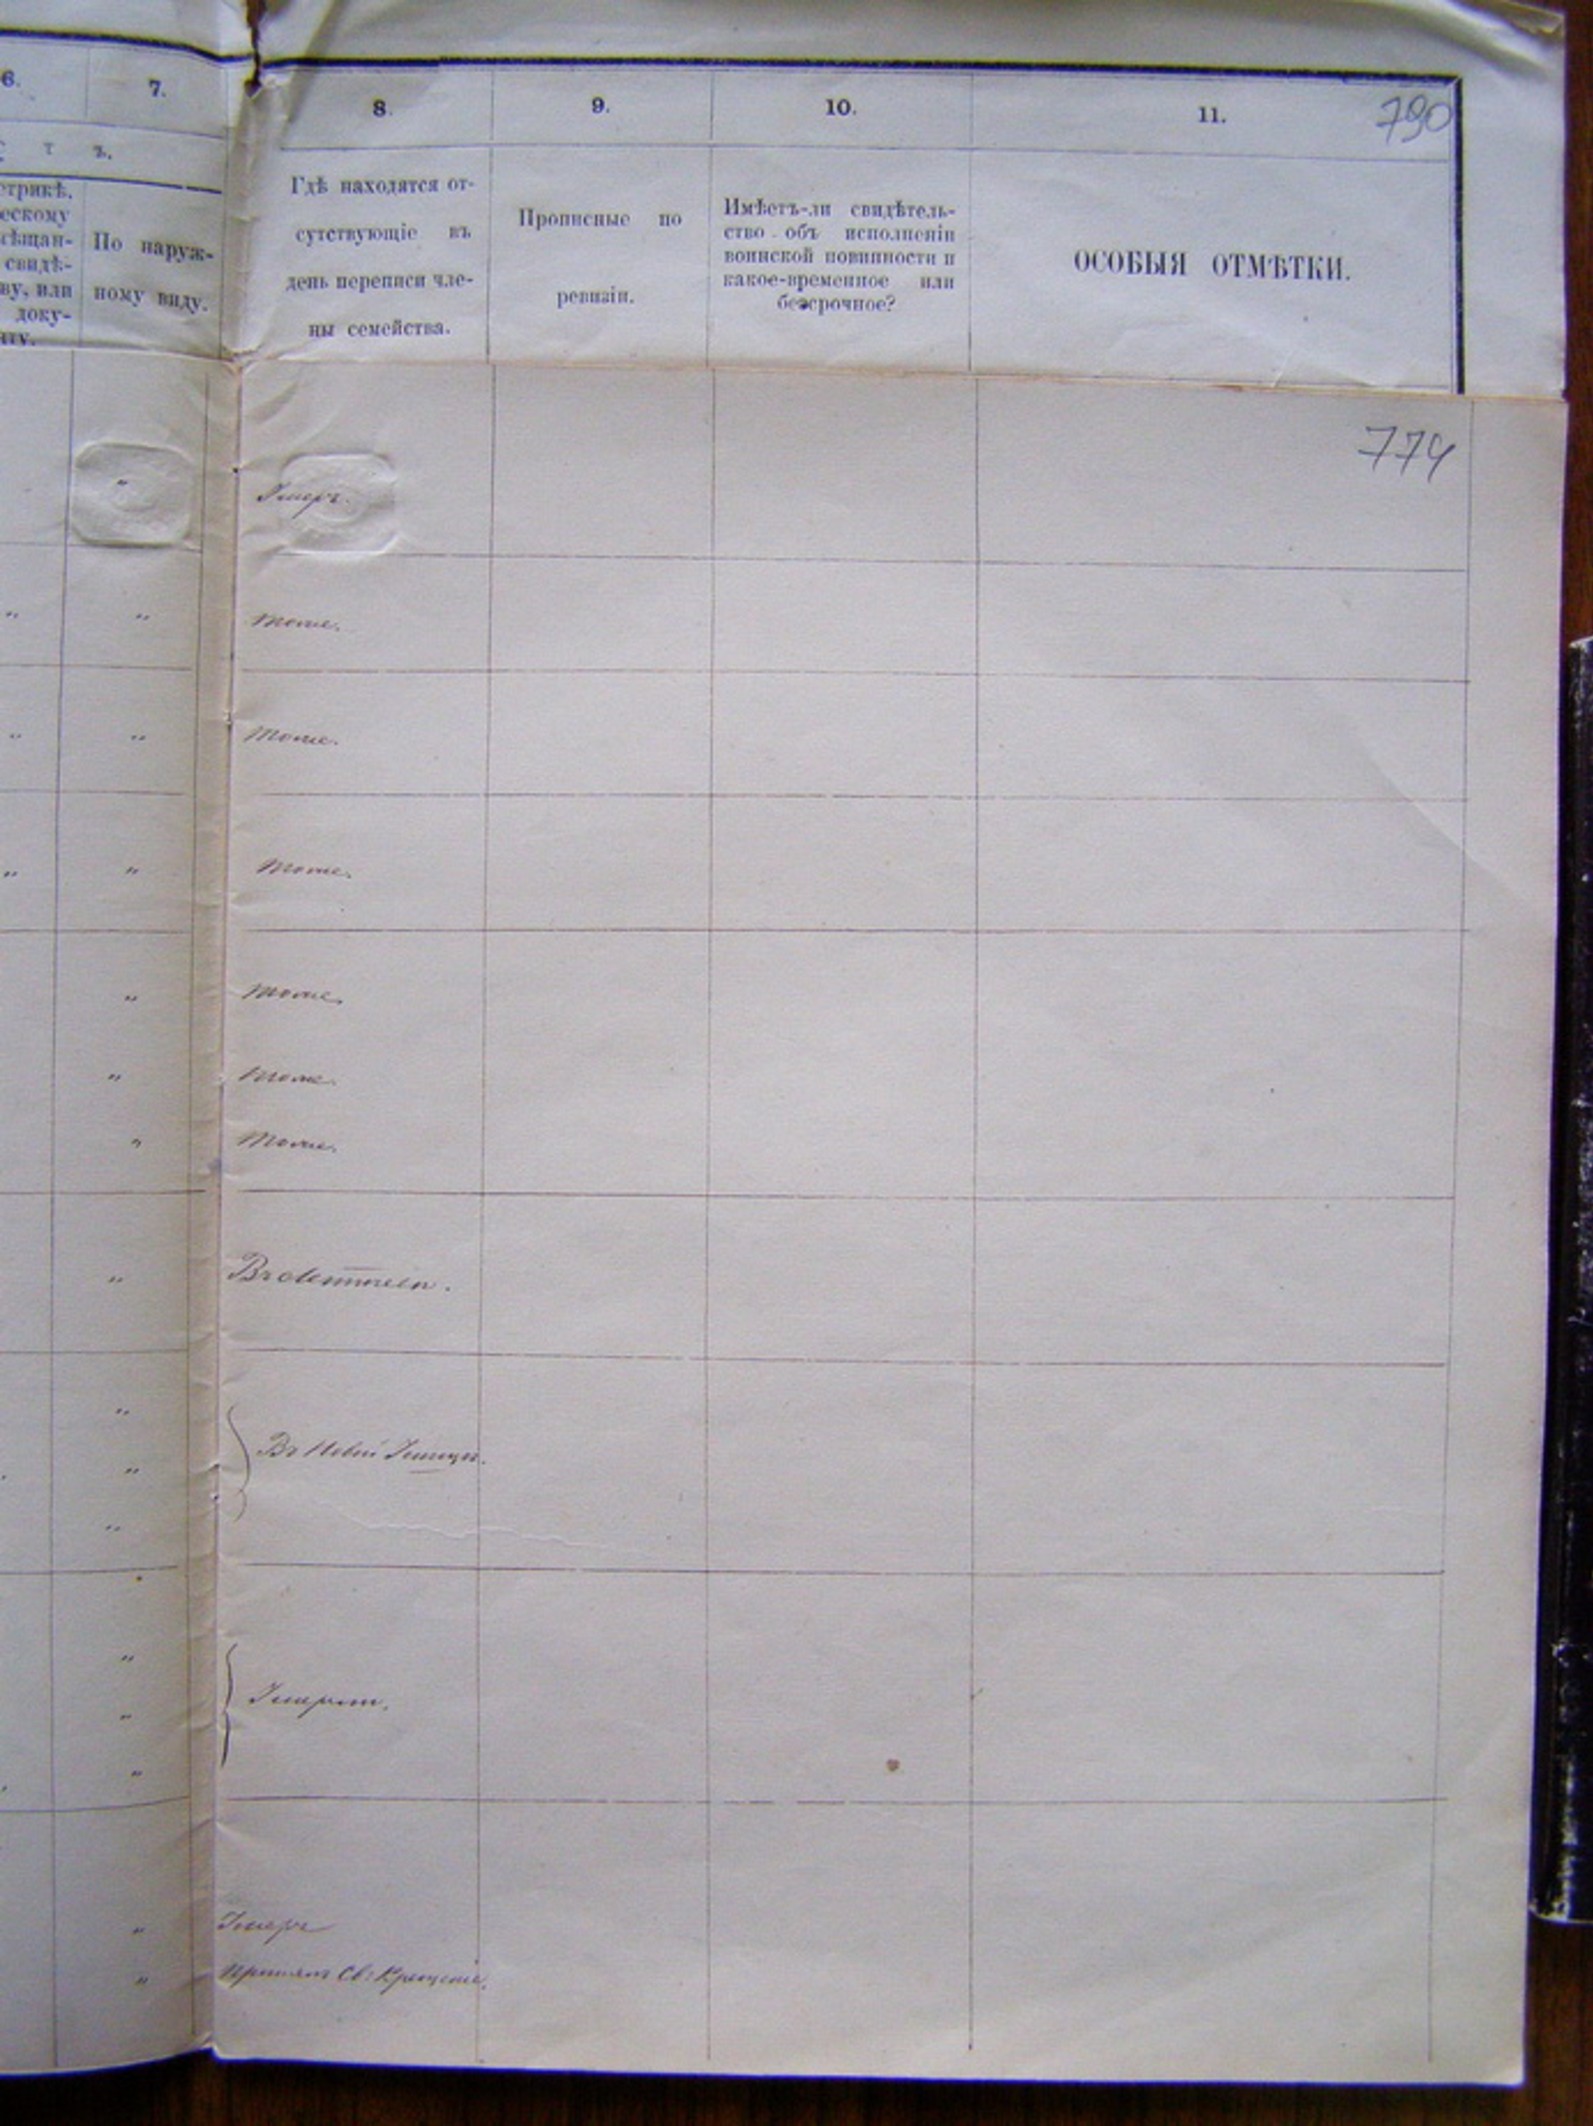 6.
7.
8.
9.
10.
11.
790
т ъ.
етрикѣ,
ескому
свидѣ-
ву, или
доку-
По наруж-
ному виду.
Гдѣ находятся от-
сутствующіе въ
день переписи чле-
ны семейства.
Прописные по
ревизіи.
Имѣетъ-ли свидѣтель-
ство объ исполненіи
воинской повинности и
какое-временное или
безсрочное?
ОСОБЫЯ ОТМѢТКИ.
774
" Умеръ.
" " тоже.
" " Тоже.
" " Тоже.
" тоже.
" тоже.
" Тоже.
"
"
" Въ Новой
"
"
"
"
" Умеръ
" Принялъ Св: Крещеніе.